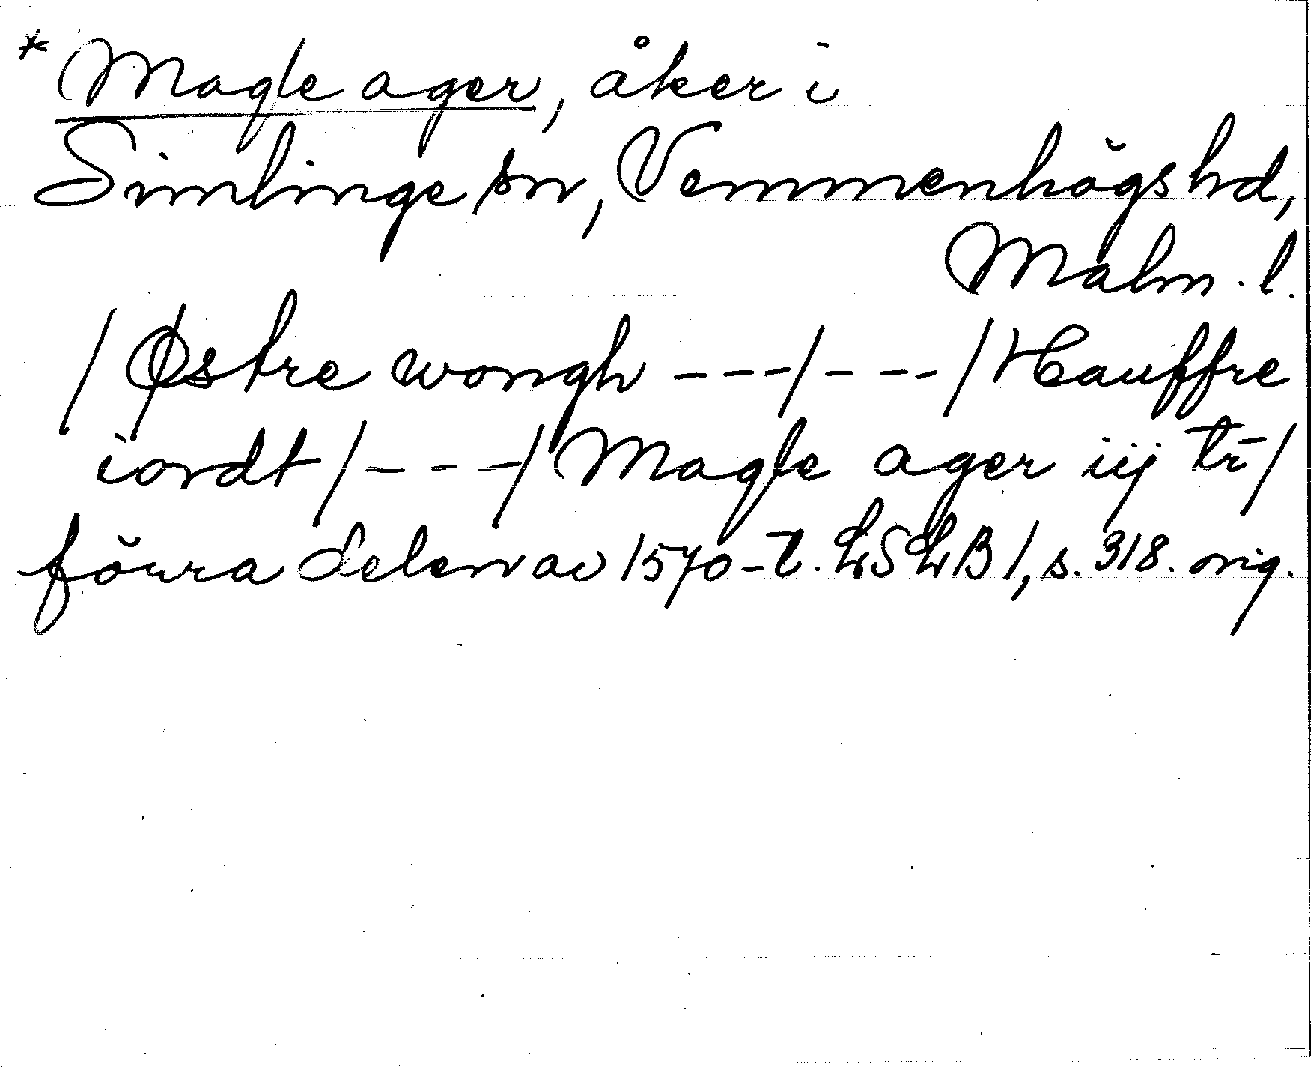 * Magle ager, åker i
Simlinge sn, Vemmenhögs hd,
Malm. l.
/ Østre wongh ---/---/ Hauffre
iordt /---/ Magle ager iij tr̄ /
förra delen av 1570-t. LSLB 1, s. 318. orig.